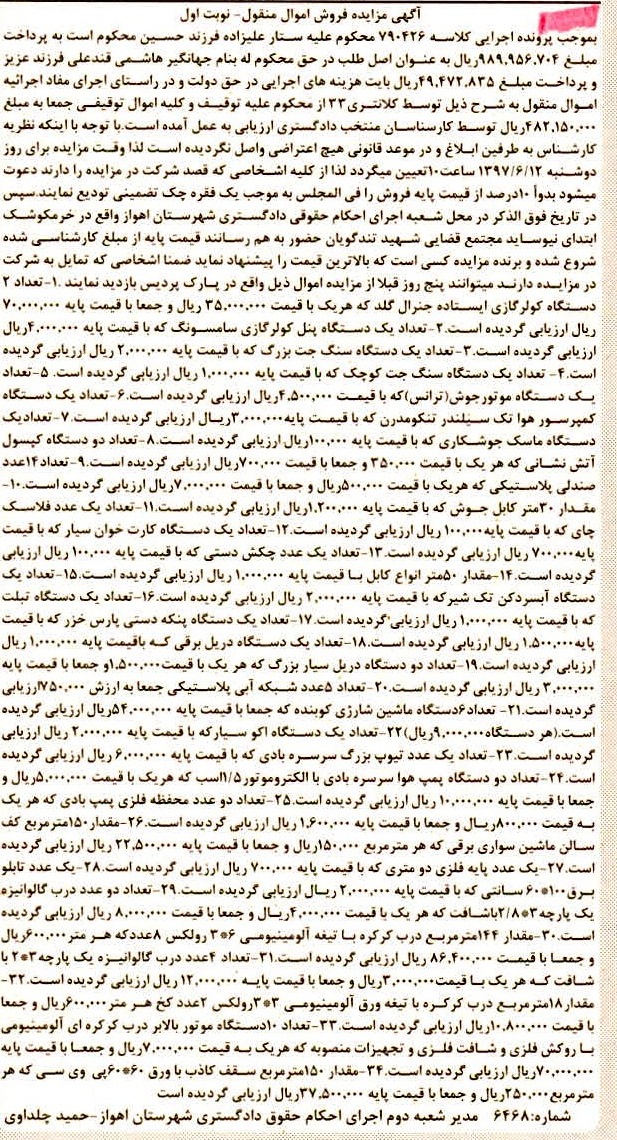 آگهی مزایده فروش اموال منقول- نوبت اول
بموجب پرونده اجرایی کلاسه ۷۹۰۴۲۶ محکوم علیه ستار علیزاده فرزند حسین محکوم است به پرداخت
مبلغ ۹۸۹,۹۵۶,۷۰۴ریال به عنوان اصل طلب در حق محکوم له بنام جهانگیر هاشمی قندعلی فرزند عزیز
و پرداخت مبلغ ۴۹,۴۷۲,۸۳۵ریال بابت هزینه های اجرایی در حق دولت و در راستای اجرای مفاد اجرائیه
اموال منقول به شرح ذیل توسط کلانتری۳۳ از محکوم علیه توقیف و کلیه اموال توقیفی جمعا به مبلغ
۴۸۲,۱۵۰,۰۰۰ریال توسط کارسناسان منتخب دادگستری ارزیابی به عمل آمده است.با توجه با اینکه نظریه
کارشناس به طرفین ابلاغ و در موعد قانونی هیچ اعتراضی واصل نگردیده است لذا وقت مزایده برای روز
دوشنبه ۱۳۹۷/۶/۱۲ ساعت۱۰تعیین میگردد لذا از کلیه اشخاصی که قصد شرکت در مزایده را دارند دعوت
میشود بدوأ ۱۰درصد از قیمت پایه فروش را فی المجلس به موجب یک فقره چک تضمینی تودیع نمایند.سپس
در تاریخ فوق الذکر در محل شعبه اجرای احکام حقوقی دادگستری شهرستان اهواز واقع در خرمکوشک
ابتدای نیوساید مجتمع قضایی شهید تندگویان حضور به هم رسانند قیمت پایه از مبلغ کارشناسی شده
شروع شده و برنده مزایده کسی است که بالاترین قیمت را پیشنهاد نماید ضمنا اشخاصی که تمایل به شرکت
در مزایده دارند میتوانند پنج روز قبلا از مزایده اموال ذیل واقع در پارک پردیس بازدید نمایند .۱-تعداد ۲
دستگاه کولرگازی ایستاده جنرال گلد که هریک با قیمت ۳۵,۰۰۰,۰۰۰ ریال و جمعا با قیمت پایه ۷۰,۰۰۰,۰۰۰
ریال ارزیابی گردیده است.۲-تعداد یک دستگاه پنل کولرگازی سامسونگ که با قیمت پایه ۴,۰۰۰,۰۰۰ریال
ارزیابی گردیده است.۳-تعداد یک دستگاه سنگ جت بزرگ که با قیمت پایه ۲,۰۰۰,۰۰۰ ریال ارزیابی گردیده
است.۴- تعداد یک دستگاه سنگ جت کوچک که با قیمت پایه ۱,۰۰۰,۰۰۰ ریال ارزیابی گردیده است. ۵-تعداد
یک دستگاه موتورجوش(ترانس)که با قیمت ۴,۵۰۰,۰۰۰ ریال ارزیابی گردیده است.۶-تعداد یک دستگاه
کمپرسور هوا تک سیلندر تنکومدرن که با قیمت پایه۳,۰۰۰,۰۰۰ریال ارزیابی گردیده است.۷-تعدادیک
دستگاه ماسک جوشکاری که با قیمت پایه ۱۰۰,۰۰۰ریال ارزیابی گردیده است.۸-تعداد دو دستگاه کپسول
آتش نشانی که هر یک با قیمت ۳۵۰,۰۰۰ و جمعا با قیمت ۷۰۰,۰۰۰ریال ارزیابی گردیده است.۹-تعداد۱۴عدد
صندلی پلاستیکی که هریک با قیمت ۵۰۰,۰۰۰ریال و جمعا با قیمت ۷,۰۰۰,۰۰۰ریال ارزیابی گردیده است.۱۰-
مقدار ۳۰متر کابل جوش که با قیمت پایه ۱,۲۰۰,۰۰۰ریال ارزیابی گردیده است.۱۱-تعداد یک عدد فلاسک
چای که با قیمت پایه۱۰۰,۰۰۰ ریال ارزیابی گردیده است.۱۲-تعداد یک دستگاه کارت خوان سیار که با قیمت
پایه۷۰۰,۰۰۰ ریال ارزیابی گردیده است.۱۳-تعداد یک عدد چکش دستی که با قیمت پایه ۱۰۰,۰۰۰ ریال ارزیابی
گردیده است.۱۴-مقدار ۵۰متر انواع کابل با قیمت پایه ۱,۰۰۰,۰۰۰ ریال ارزیابی گردیده است.۱۵-تعداد یک
دستگاه آبسردکن تک شیرکه با قیمت پایه ۲,۰۰۰,۰۰۰ ریال ارزیابی گردیده است.۱۶-تعداد یک دستگاه تبلت
که با قیمت پایه ۱,۰۰۰,۰۰۰ ریال ارزیابی گردیده است.۱۷-تعداد یک دستگاه پنکه دستی پارس خزر که با قیمت
پایه۱,۵۰۰,۰۰۰ ریال ارزیابی گردیده است.۱۸-تعداد یک دستگاه دریل برقی که باقیمت پایه ۱,۰۰۰,۰۰۰ ریال
ارزیابی گردیده است.۱۹-تعداد دو دستگاه دریل سیار بزرگ که هر یک با قیمت۱,۵۰۰,۰۰۰و جمعا با قیمت پایه
۳,۰۰۰,۰۰۰ ریال ارزیابی گردیده است.۲۰-تعداد ۵عدد شبکه آبی پلاستیکی جمعا به ارزش ۷۵۰,۰۰۰ارزیابی
گردیده است.۲۱- تعداد۶دستگاه ماشین شارژی کوبنده که جمعا با قیمت پایه ۵۴,۰۰۰,۰۰۰ریال ارزیابی گردیده
است.(هر دستگاه۹,۰۰۰,۰۰۰ریال)۲۲-تعداد یک دستگاه اکو سیارکه با قیمت پایه ۲,۰۰۰,۰۰۰ ریال ارزیابی
گردیده است.۲۳-تعداد یک عدد تیوپ بزرگ سرسره بادی که با قیمت پایه ۶,۰۰۰,۰۰۰ ریال ارزیابی گردیده
است.۲۴-تعداد دو دستگاه پمپ هوا سرسره بادی با الکتروموتور۱/۵اسب که هریک با قیمت ۵,۰۰۰,۰۰۰ریال و
جمعا با قیمت پایه ۱۰,۰۰۰,۰۰۰ ریال ارزیابی گردیده است.۲۵-تعداد دو عدد محفظه فلزی پمپ بادی که هر یک
به قیمت ۸۰۰,۰۰۰ریال و جمعا با قیمت پایه ۱,۶۰۰,۰۰۰ ریال ارزیابی گردیده است.۲۶-مقدار۱۵۰مترمربع کف
سالن ماشین سواری برقی که هر مترمربع ۱۵۰,۰۰۰ریال و جمعا با قیمت پایه ۲۲,۵۰۰,۰۰۰ ریال ارزیابی گردیده
است.۲۷-یک عدد پایه فلزی دو متری که با قیمت پایه ۷۰۰,۰۰۰ ریال ارزیابی گردیده است.۲۸-یک عدد تابلو
برق۱۰۰*۶۰ سانتی که با قیمت پایه ۲,۰۰۰,۰۰۰ ریال ارزیابی گردیده است.۲۹-تعداد دو عدد درب گالوانیزه
یک پارچه۳*۲/۸باشافت که هر یک با قیمت ۴,۰۰۰,۰۰۰ریال و جمعا با قیمت ۸,۰۰۰,۰۰۰ ریال ارزیابی گردیده
است.۳۰-مقدار ۱۴۴مترمربع درب کرکره با تیغه آلومینیومی ۶*۳ رولکس ۸عددکه هر متر۶۰۰,۰۰۰ریال
و جمعا با قیمت ۸۶,۴۰۰,۰۰۰ ریال ارزیابی گردیده است.۳۱-تعداد ۴عدد درب گالوانیزه یک پارچه۳*۲ با
شافت که هر یک با قیمت۳,۰۰۰,۰۰۰ریال و جمعا با قیمت پایه ۱۲,۰۰۰,۰۰۰ ریال ارزیابی گردیده است.۳۲-
مقدار۱۸مترمربع درب کرکره با تیغه ورق آلومینیومی ۳*۳رولکس ۲عدد کخ هر متر۶۰۰,۰۰۰ریال و جمعا
با قیمت ۱۰,۸۰۰,۰۰۰ریال ارزیابی گردیده است.۳۳-تعداد ۱۰دستگاه موتور بالابر درب کرکره ای آلومینیومی
با روکش فلزی و شافت فلزی و تجهیزات منصوبه که هریک به قیمت ۷,۰۰۰,۰۰۰ریال و جمعا با قیمت پایه
۷۰,۰۰۰,۰۰۰ریال ارزیابی گردیده است.۳۴-مقدار ۱۵۰مترمربع سقف کاذب با ورق ۶۰*۶۰پی وی سی که هر
مترمربع۲۵۰,۰۰۰ریال و جمعا با قیمت پایه ۳۷,۵۰۰,۰۰۰ریال ارزیابی گردیده است
شماره:۶۴۶۸ مدیر شعبه دوم اجرای احکام حقوق دادگستری شهرستان اهواز-حمید چلداوی